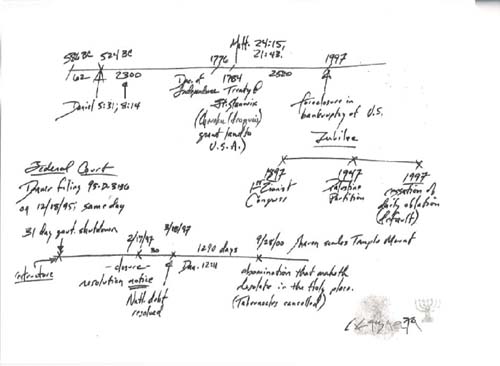 Matt. 24:15,
21:43.
586 BC 524 BC 1776 1997
62 2300 1784 2500
Daniel 5:31; 8:14
Dec. of Independence
Treaty of
Ft. Stanwix
grant land to
U.S.A.)
foreclosure in
bankruptcy of U.S.
Jubilee
1897 1947 1997
1st Zionist
Congress
Palestine
Partition
cessation of
daily oblation
(default)
Federal Court
filing 95-D-
on 12/18/95; same day
31 day govt. shutdown
2/17/97 3/18/97
30 1290 days
Dan. 12:11
9/28/00 Sharon Temple Mount
closure
resolution notice
Nat'l debt
resolved
abomination that maketh
desolate in the Holy place.
(Tabernacles cancelled)